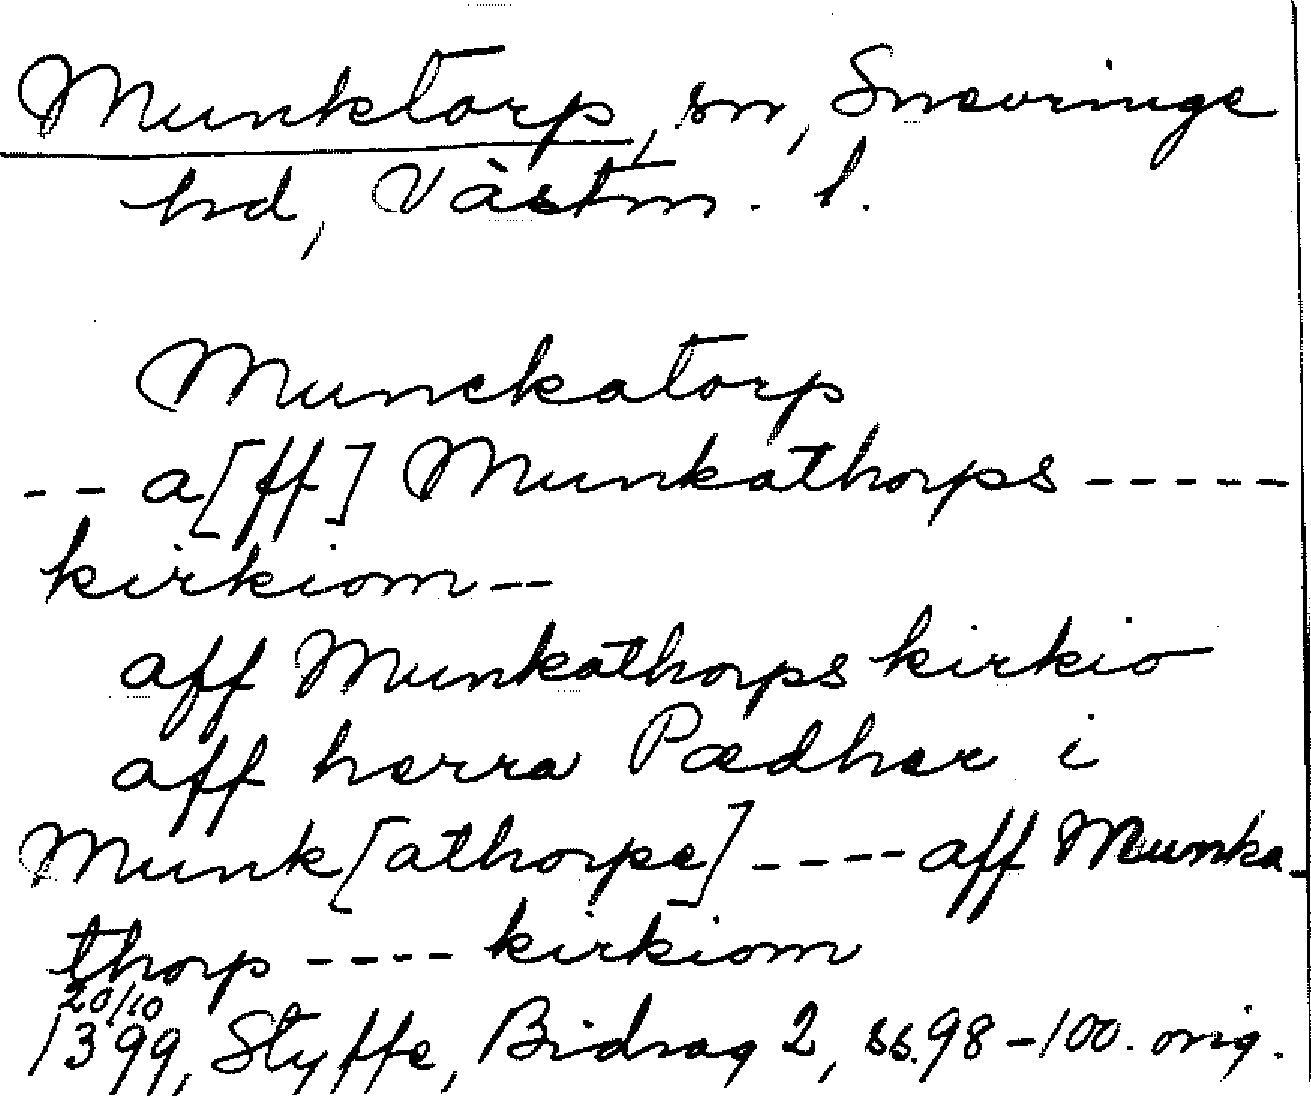 Munktorp, sn, Snevringe
hd, Västm. l.
Munckatorp
-- a[ff] Munkathorps -----
kirkiom --
aff Munkathorps kirkio
aff herra Pædher i
Munk[athorpe] ---- aff Munka-
thorp ---- kirkiom
20/10
1399, Styffe, Bidrag 2, ss. 98-100. orig.